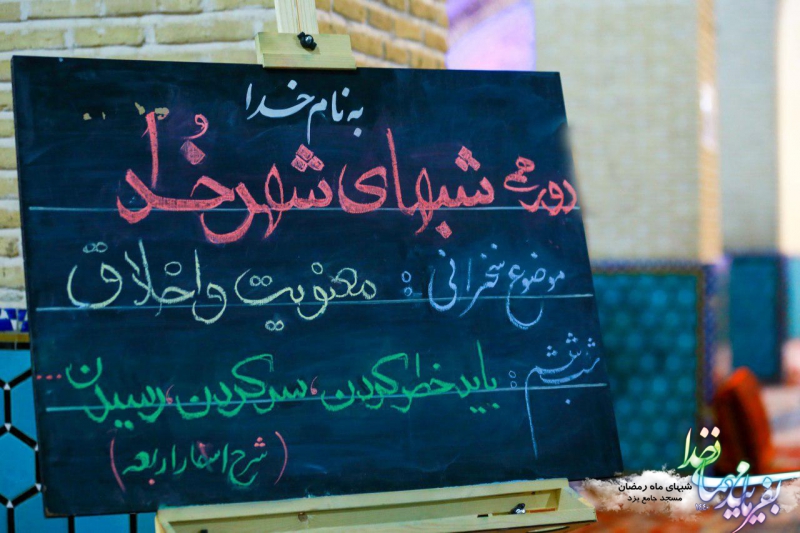 به نام خدا
دورهمی شبهای شهر خُدا
موضوع سخنرانی : معنویت و اخلاق
شب ششم : باید خطر کردن، سفر کردن، رسیدن...
(شرح اسفار اربعه)
بفرمایید مهمانی خدا
شبهای ماه رمضان
مسجد جامع یزد
۱۴۴۰